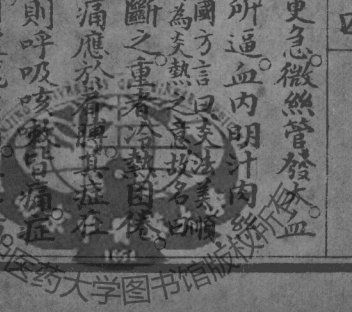 更急微絲管發大血
所逼血内明汁肉絲
國方言曰炎法美順
為炎熱之意故名曰
斷之重者冷熱困倦
痛應於肩膊其症在
則呼吸咳嗽皆痛症
医药大学图书馆版权所有